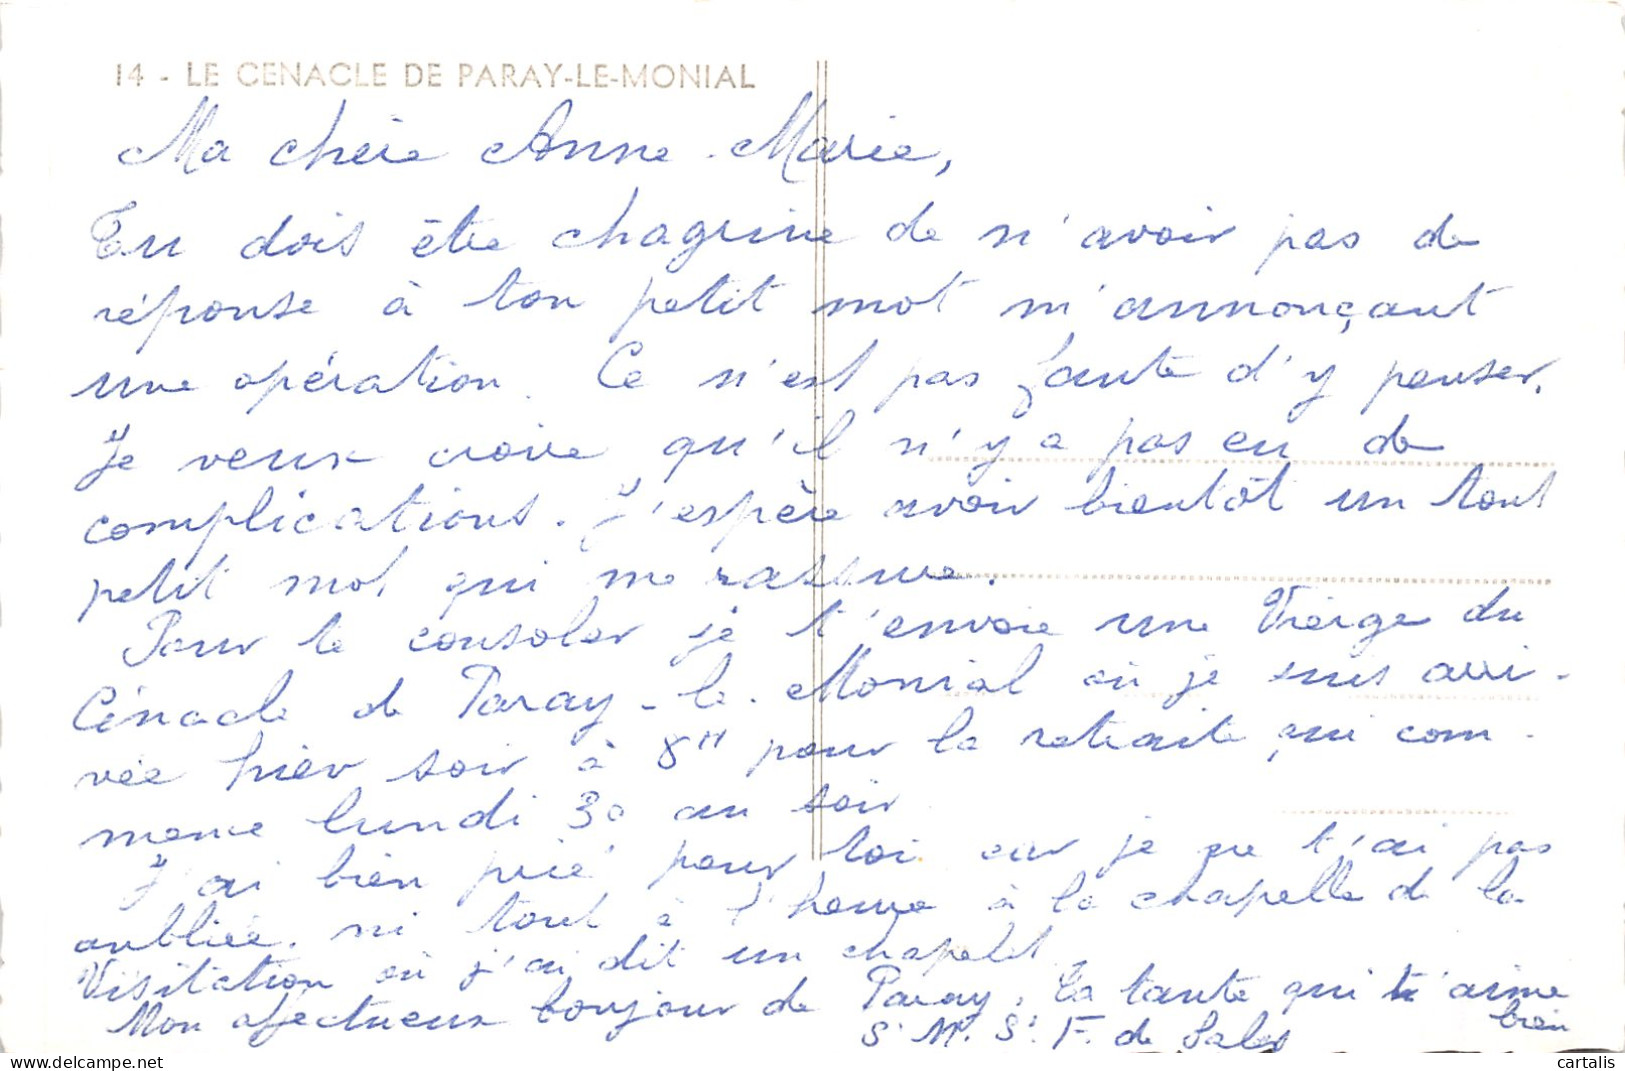 14 - LE CENACLE DE PARAY-LE-MONIAL
Ma chère Anne-Marie,
Tu dois être chagrine de n'avoir pas de
réponse à ton petit mot m'annonçant
une opération. Ce n'est pas faute d'y penser.
Je veux croire qu'il n'y a pas eu de
complications. J'espère avoir bientôt un tout
petit mot qui me rassure.
Pour te consoler je t'envoie une Vierge du
Cénacle de Paray-le-Monial où je suis arri-
vée hier soir à 8H pour la retraite qui com-
mence lundi 30 au soir
J'ai bien prié pour toi car je ne t'ai pas
oubliée, ni tout à l'heure à la chapelle de la
Visitation où j'ai dit un chapelet.
Mon affectueux bonjour de Paray. Ta tante qui t'aime
bien
Sr M. St F. de Sales
cartalis